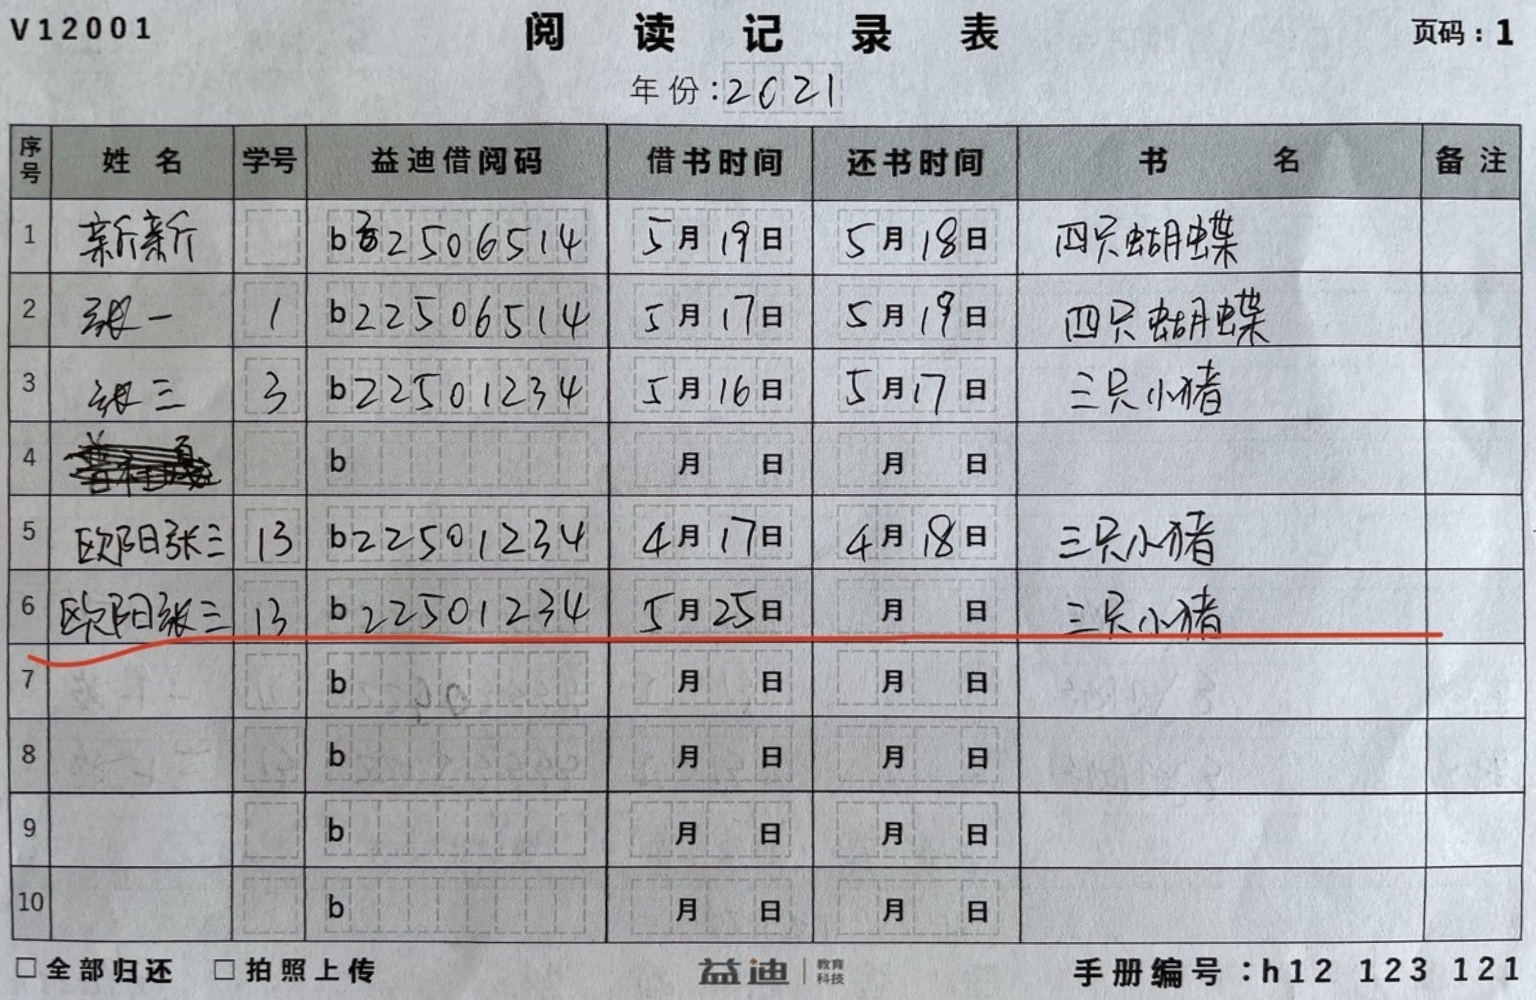 V12001 阅读记录表 页码：1
年份：2021
序号 姓名 学号 益迪借阅码 借书时间 还书时间 书名 备注
1 新新 b 2506514 5月19日 5月18日 四只蝴蝶
2 张一 1 b22506514 5月17日 5月19日 四只蝴蝶
3 张三 3 b22501234 5月16日 5月17日 三只小猪
4 b 月 日 月 日
5 欧阳张三 13 b22501234 4月17日 4月18日 三只小猪
6 欧阳张三 13 b22501234 5月25日 月 日 三只小猪
7 b 月 日 月 日
8 b 月 日 月 日
9 b 月 日 月 日
10 b 月 日 月 日
□全部归还 □拍照上传 益迪 教育科技 手册编号：h12 123 121